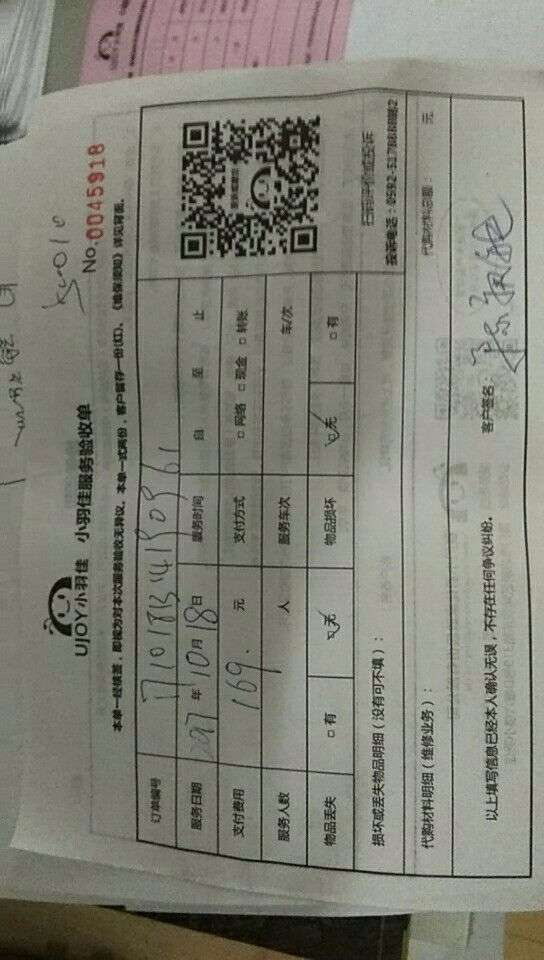 UJOY小羽佳 小羽佳服务验收单
No.0045918
本单一经核签，即视为对本次服务验收无异议。本单一式两份，客户留存一份(红)。《维保须知》详见背面。
订单编号
服务日期 2017 年 10 月 18 日 服务时间 自 至 止
支付费用 169. 元 支付方式 □ 网络 □ 现金 □ 转账
服务人数 人 服务车次 车/次
物品丢失 □ 有 ☑ 无 物品损坏 ☑ 无 □ 有
损坏或丢失物品明细（没有可不填）：
代购材料明细（维修业务）： 代购材料总额： 元
以上填写信息已经本人确认无误，不存在任何争议纠纷。
客户签名：
UJOY